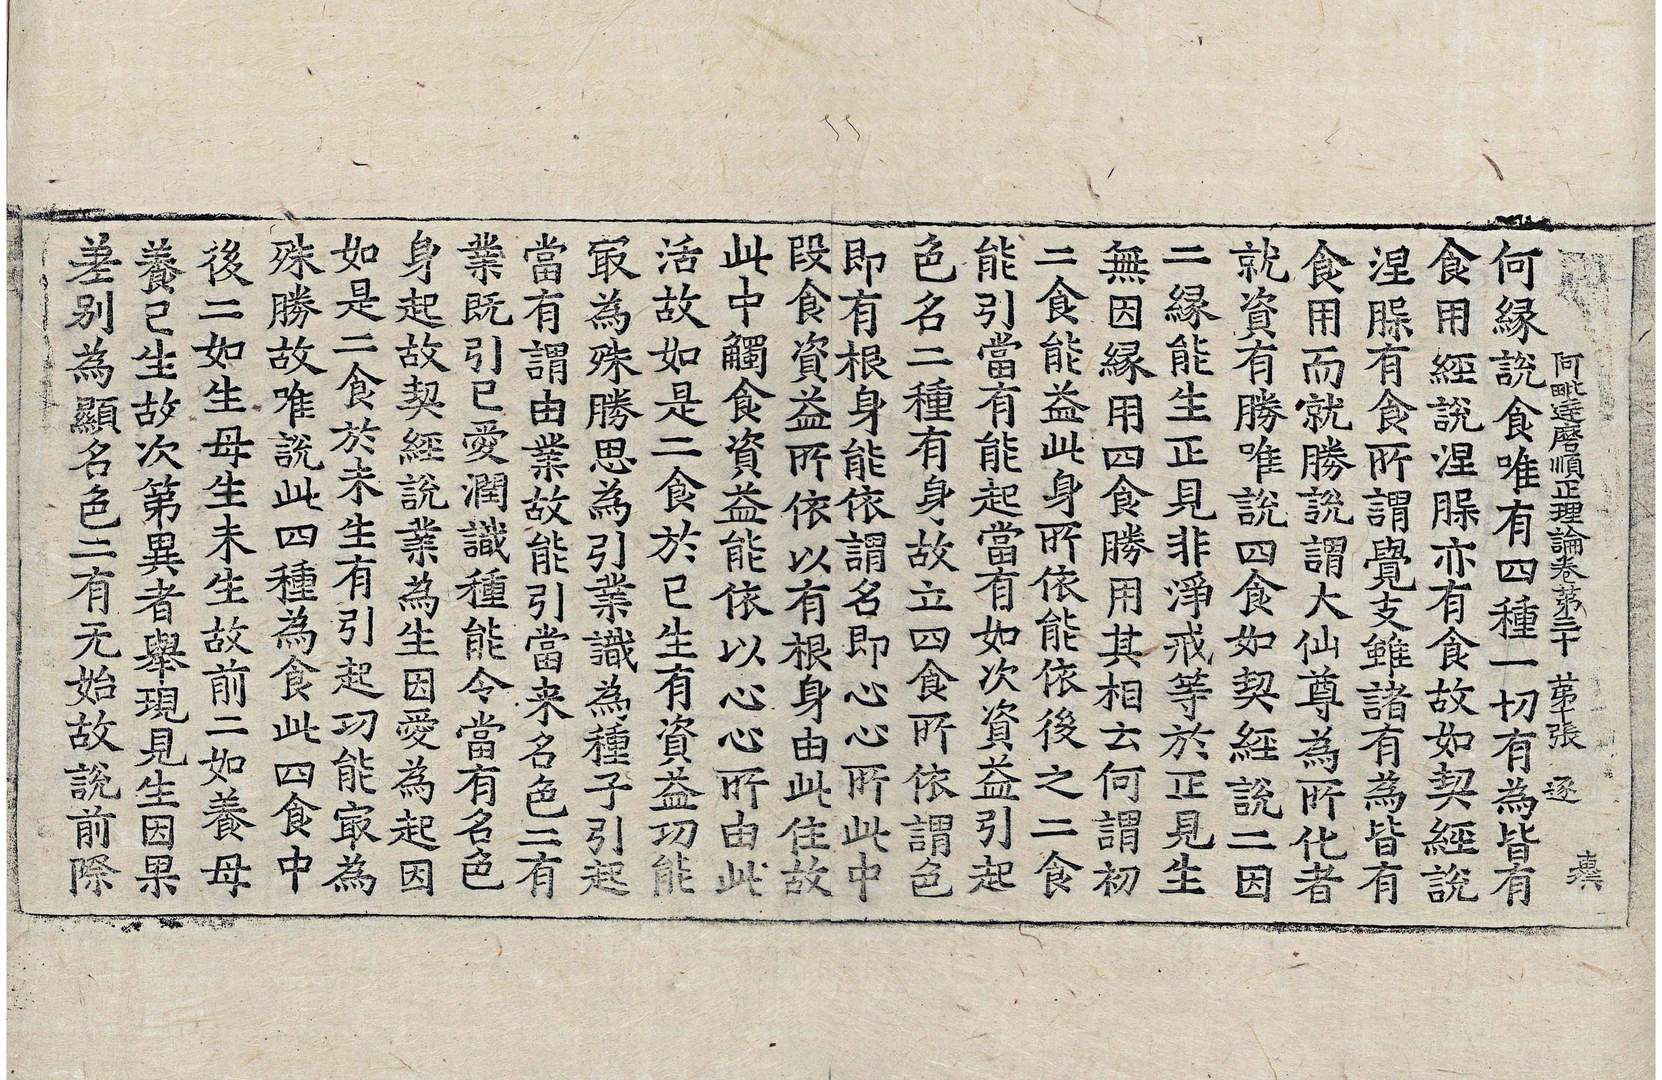 阿毗達磨順正理論卷第三十 第 張 逐
何縁說食唯有四種一切有為皆有
食用經說涅槃亦有食故如契經說
涅槃有食所謂覺支雖諸有為皆有
食用而就勝說謂大仙尊為所化者
就資有勝唯說四食如契經說二因
二縁能生正見非淨戒等於正見生
無因縁用四食勝用其相云何謂初
二食能益此身所依能依後之二食
能引當有能起當有如次資益引起
色名二種有身故立四食所依謂色
即有根身能依謂名即心心所此中
段食資益所依以有根身由此住故
此中觸食資益能依以心心所由此
活故如是二食於已生有資益功能
冣為殊勝思為引業識為種子引起
當有謂由業故能引當来名色二有
業既引已愛潤識種能令當有名色
身起故契經說業為生因愛為起因
如是二食於未生有引起功能冣為
殊勝故唯說此四種為食此四食中
後二如生母生未生故前二如養母
養已生故次第異者舉現見生因果
差別為顯名色二有无始故說前際